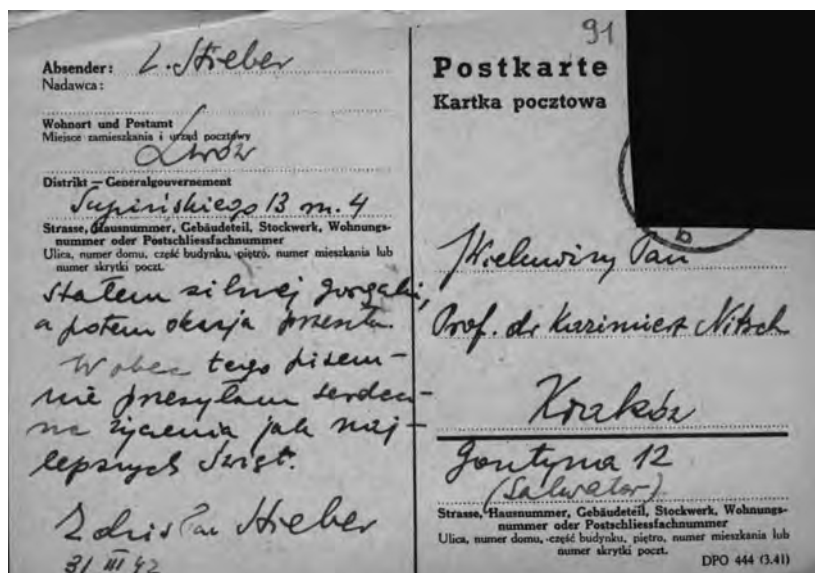 91
Absender: Z. Stieber
Nadawca:
Wohnort und Postamt
Miejsce zamieszkania i urząd pocztowy
Lwów
Distrikt — Generalgouvernement
Supińskiego 13 m. 4
Strasse, Hausnummer, Gebäudeteil, Stockwerk, Wohnungs-
nummer oder Postschliessfachnummer
Ulica, numer domu, część budynku, piętro, numer mieszkania lub
numer skrytki poczt.
stałem silnej
a potem okazja przeszła.
Wobec tego pisem-
nie przesyłam serdecz-
ne życzenia jak naj-
lepszych Świąt.
Zdzisław Stieber
31 III 42
Postkarte
Kartka pocztowa
b
JWielmożny Pan
Prof. dr Kazimierz Nitsch
Kraków
Gontyna 12
(Salwator)
Strasse, Hausnummer, Gebäudeteil, Stockwerk, Wohnungs-
nummer oder Postschliessfachnummer
Ulica, numer domu, część budynku, piętro, numer mieszkania lub
numer skrytki poczt.
DPO 444 (3.41)